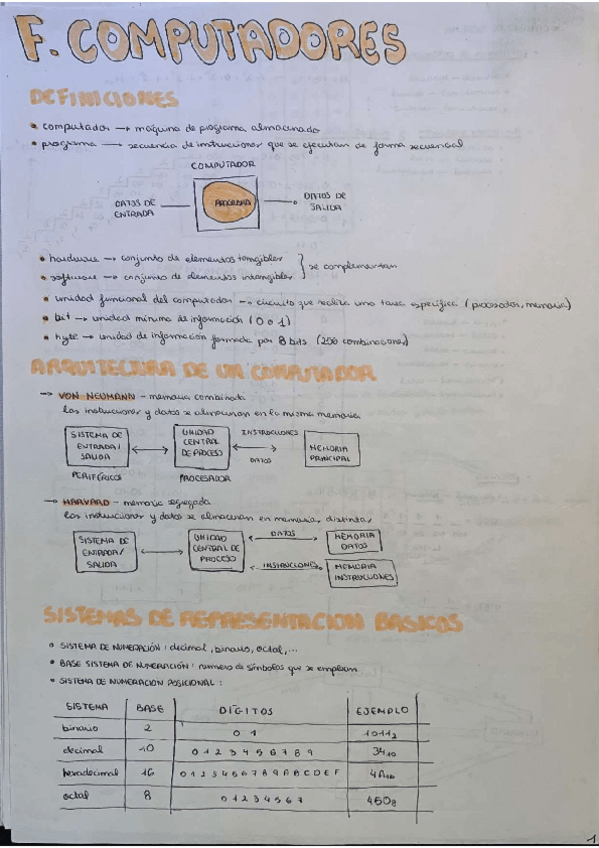 F. COMPUTADORES
DEFINICIONES
• computador → máquina de programa almacenado
• programa → secuencia de instrucciones que se ejecutan de forma secuencial
COMPUTADOR
DATOS DE ENTRADA
PROGRAMA
DATOS DE SALIDA
• hardware → conjunto de elementos tangibles
• software → conjunto de elementos intangibles
se complementan
• unidad funcional del computador → circuito que realiza una tarea específica (procesador, memoria)
• bit → unidad mínima de información (0 o 1)
• byte → unidad de información formada por 8 bits (256 combinaciones)
ARQUITECTURA DE UN COMPUTADOR
→ VON NEUMANN - memoria combinada
las instrucciones y datos se almacenan en la misma memoria
SISTEMA DE ENTRADA/ SALIDA
UNIDAD CENTRAL DE PROCESO
INSTRUCCIONES
DATOS
MEMORIA PRINCIPAL
PERIFÉRICOS
PROCESADOR
→ HARVARD - memoria segregada
las instrucciones y datos se almacenan en memorias distintas
SISTEMA DE ENTRADA/ SALIDA
UNIDAD CENTRAL DE PROCESO
DATOS
MEMORIA DATOS
INSTRUCCIONES
MEMORIA INSTRUCCIONES
SISTEMAS DE REPRESENTACION BASICOS
• SISTEMA DE NUMERACIÓN: decimal, binario, octal, ...
• BASE SISTEMA DE NUMERACIÓN: numero de símbolos que se emplean
• SISTEMA DE NUMERACION POSICIONAL:
SISTEMA BASE DÍGITOS EJEMPLO
binario 2 0 1 1011₂
decimal 10 0 1 2 3 4 5 6 7 8 9 34₁₀
hexadecimal 16 0 1 2 3 4 5 6 7 8 9 A B C D E F 4A₁₆
octal 8 0 1 2 3 4 5 6 7 450₈
1